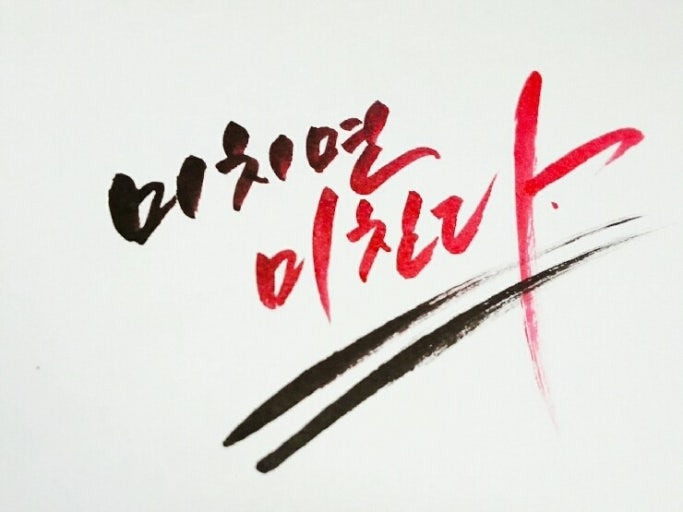 미치면
미친다.